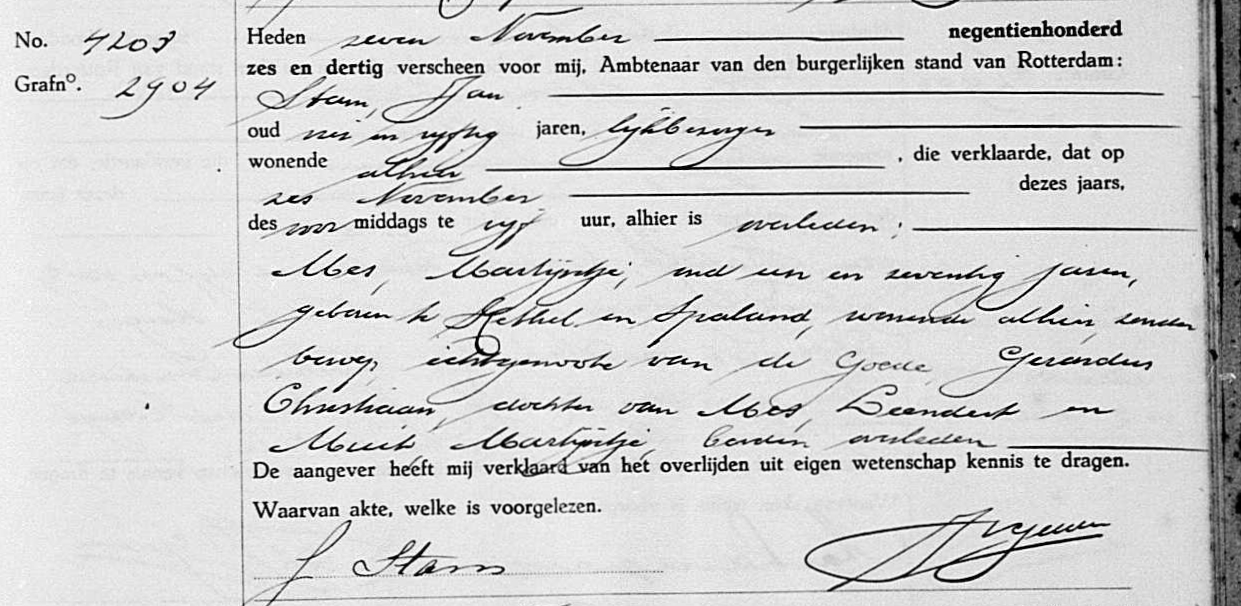 No. 4203
Grafno. 2904
Heden zeven November negentienhonderd
zes en dertig verscheen voor mij, Ambtenaar van den burgerlijken stand van Rotterdam:
Stam, Jan
oud en vyftig jaren, lykbezorger
wonende alhier, die verklaarde, dat op
zes November dezes jaars,
des voor middags te vyf uur, alhier is overleden:
Mes, Martijntje, oud een en zeventig jaren,
geboren te Kethel en Spaland, wonende alhier, zonder
beroep, echtgenoote van de Goede, Gerardus
Christiaan, dochter van Mes, Leendert en
Muit, Martijntje, beiden overleden
De aangever heeft mij verklaard van het overlijden uit eigen wetenschap kennis te dragen.
Waarvan akte, welke is voorgelezen.
J Stam